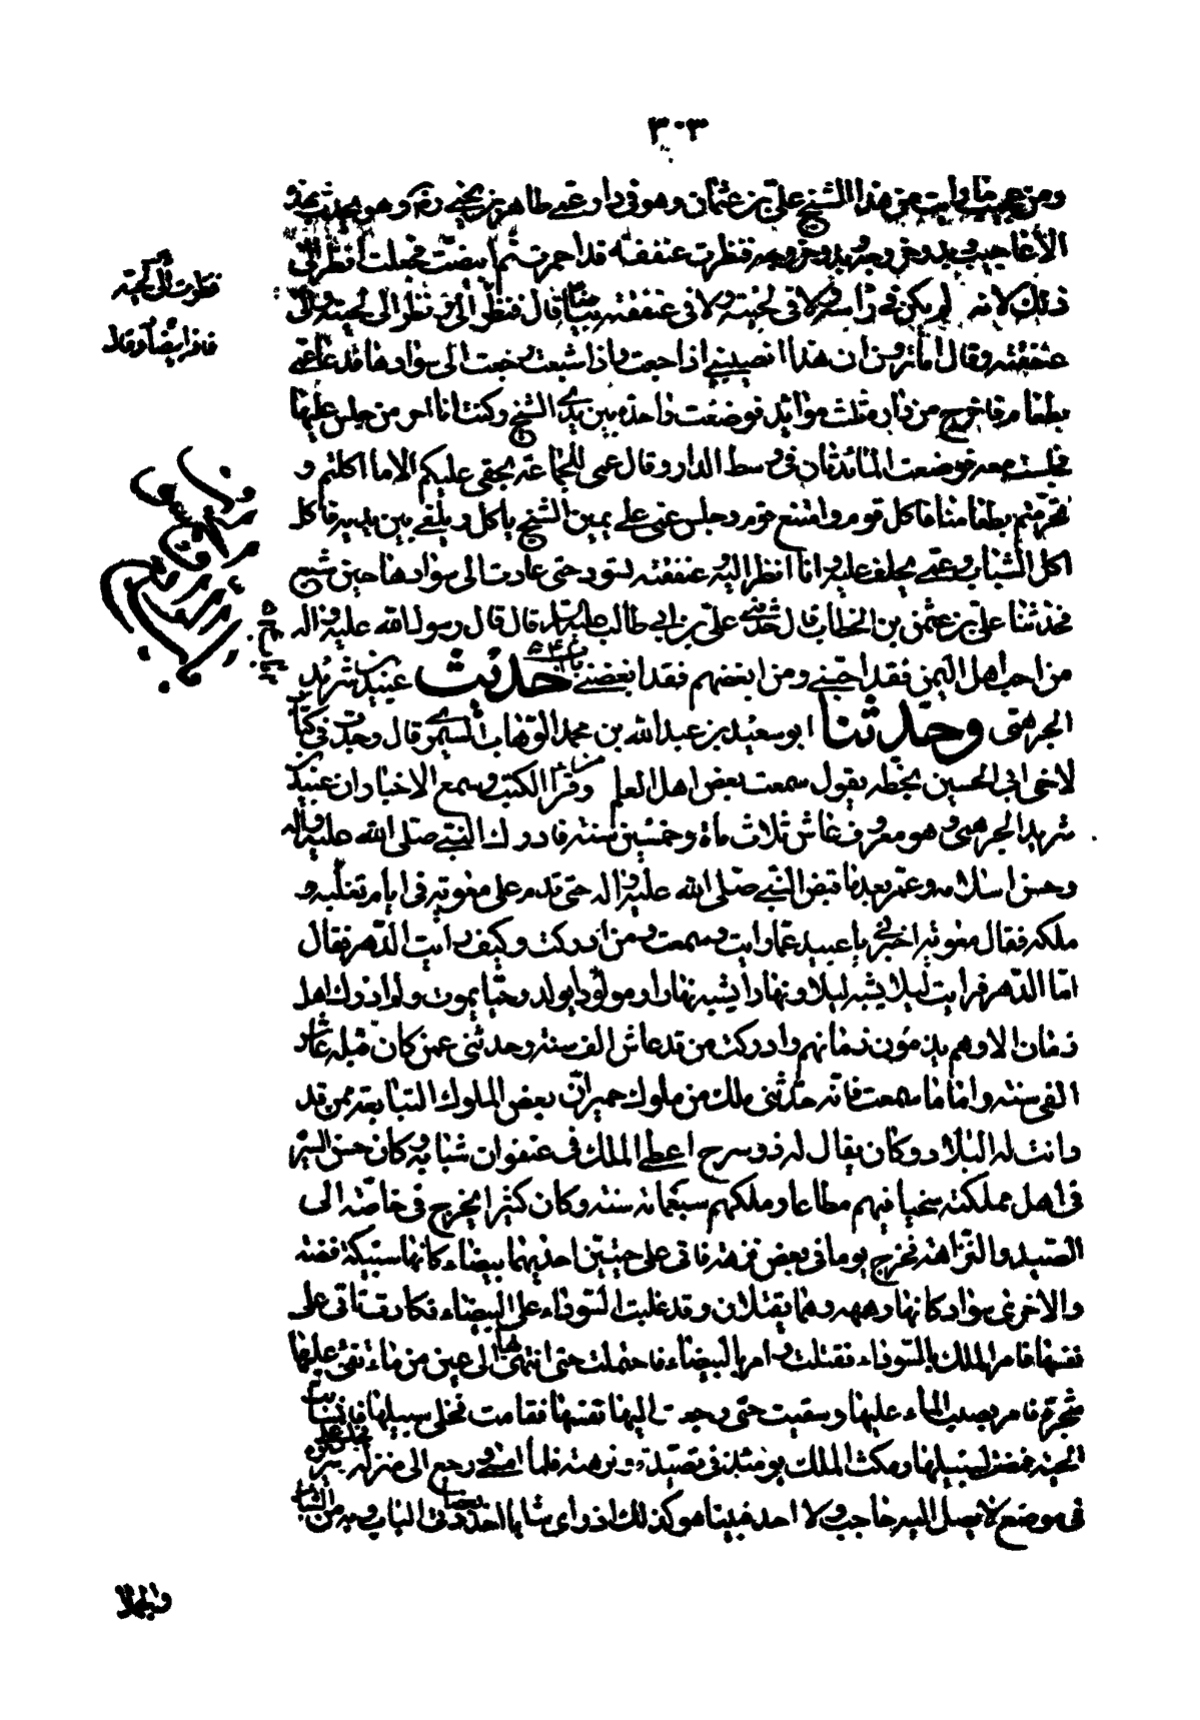 ٣٠٣
ومن عجيب ما رأيت من هذا الشيخ علي بن عثمان وهو في دار عمي طاهر بن يحيى رض وهو يحدث بهذه
الأعاجيب وبدو خروجه فنظرت عنفقته قد احمرت ثم ابيضت فجعلت أنظر إلى
ذلك لانه لم يكن في رأسه ولا في لحيته ولا في عنفقته بياض قال فنظر الى نظرى الى لحيته والى
عنفقته وقال أما ترون ان هذا يصيبني اذا جعت واذا شبعت رجعت الى سوادها فدعا عمي
بطعام فاخرج من داره ثلث موائد فوضعت واحدة بين يدي الشيخ وكنت انا احد من جلس عليها
فجلست معه فوضعت المائدتان في وسط الدار وقال عمي للجماعة بحقي عليكم الا ما اكلتم و
تحرمتم بطعامنا فاكل قوم وامتنع قوم وجلس عمي على يمين الشيخ ياكل ويلقي بين يديه فاكل
اكل الشباب وعمي يحلف عليه وانا انظر اليه وعنفقته تسود حتى عادت الى سوادها حين شبع
فحدثنا علي بن عثمن بن الخطاب قال حدثني علي بن ابي طالب عليه السلام قال قال رسول الله عليه واله
من احب اهل اليمن فقد احبني ومن ابغضهم فقد ابغضني باب ٥٤ حديث عبيد بن شريد
الجرهمي وحدثنا ابو سعيد بن عبد الله بن محمد الوهاب السجزي قال وجدت في كتاب
لاخي ابي الحسين بخطه يقول سمعت بعض اهل العلم وقرأ الكتب وسمع الاخبار ان عبيد بن
شريد الجرهمي وهو معروف عاش ثلاث مأة وخمسين سنة فادرك النبي صلى الله عليه واله
وحسن اسلامه وعمر بعد ما قبض النبي صلى الله عليه واله حتى قدم على معوية في ايام تغلبه و
ملكه فقال معوية اخبرني يا عبيد عما رايت وسمعت ومن ادركت وكيف رايت الدهر فقال
اما الدهر فرايت ليلا يشبه ليلا ونهارا يشبه نهارا ومولودا يولد وحيا يموت ولم ادرك اهل
زمان الا وهم يذمون زمانهم وادركت من قد عاش الف سنة وحدثني عمن كان قبله عاش
الفي سنة واما ما سمعت فانه حدثني ملك من ملوك حمير ان بعض الملوك التبابعة ممن قد
دانت له البلاد وكان يقال له ذو سرح اعطي الملك في عنفوان شبابه وكان حسن السيرة
في اهل مملكته سخيا فيهم مطاعا وملكهم سبعماة سنة وكان كثيرا يخرج في خاصته الى
الصيد والنزاهة فخرج يوما في بعض نزهته فاتى على حيتين احديهما بيضاء كانها سبيكة فضة
والاخرى سوداء كانها حممة وهما يقتتلان وقد غلبت السوداء على البيضاء فكادت تاتى على
نفسها فامر الملك بالسوداء فقتلت وامر بالبيضاء فاحتملت حتى انتهى بها الى عين من ماء نقي عليها
شجرة فامر بصب الماء عليها وسقيت حتى رجعت اليها نفسها فقامت فخلى سبيلها فانسابت
الحية فمضت لسبيلها ومكث الملك يومئذ في تصيده ونزهته فلما امسى ورجع الى منزله جلس على سريره
في موضع لا يصل اليه حاجب ولا احد فبينا هو كذلك اذ راى شابا اخذ بعضادتى الباب وبه من الشباب
فنظرت الى لحيته
والجمال